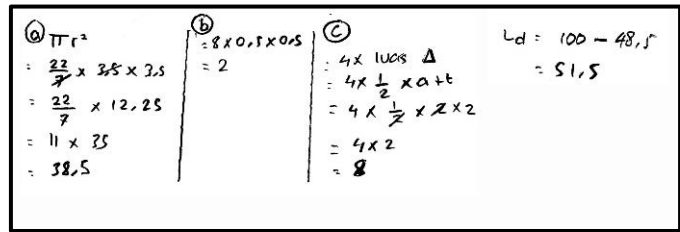 ⓐ πr²
= 22/7 x 3,5 x 3,5
= 22/7 x 12,25
= 11 x 35
= 38,5
ⓑ
= 8 x 0,5 x 0,5
= 2
ⓒ
= 4x luas Δ
= 4x 1/2 x a+t
= 4 x 1/2 x 2 x 2
= 4 x 2
= 8
Ld = 100 - 48,5
= 51,5